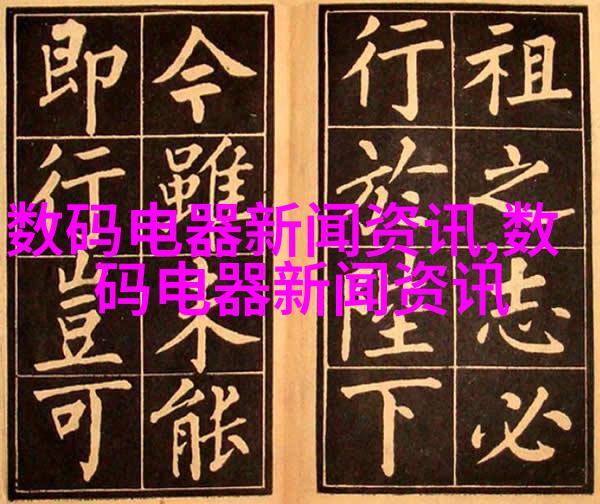 数码电器新闻资讯,数
码电器新闻资讯
祖之志必
行於陛下
今雖未能
即行豈可